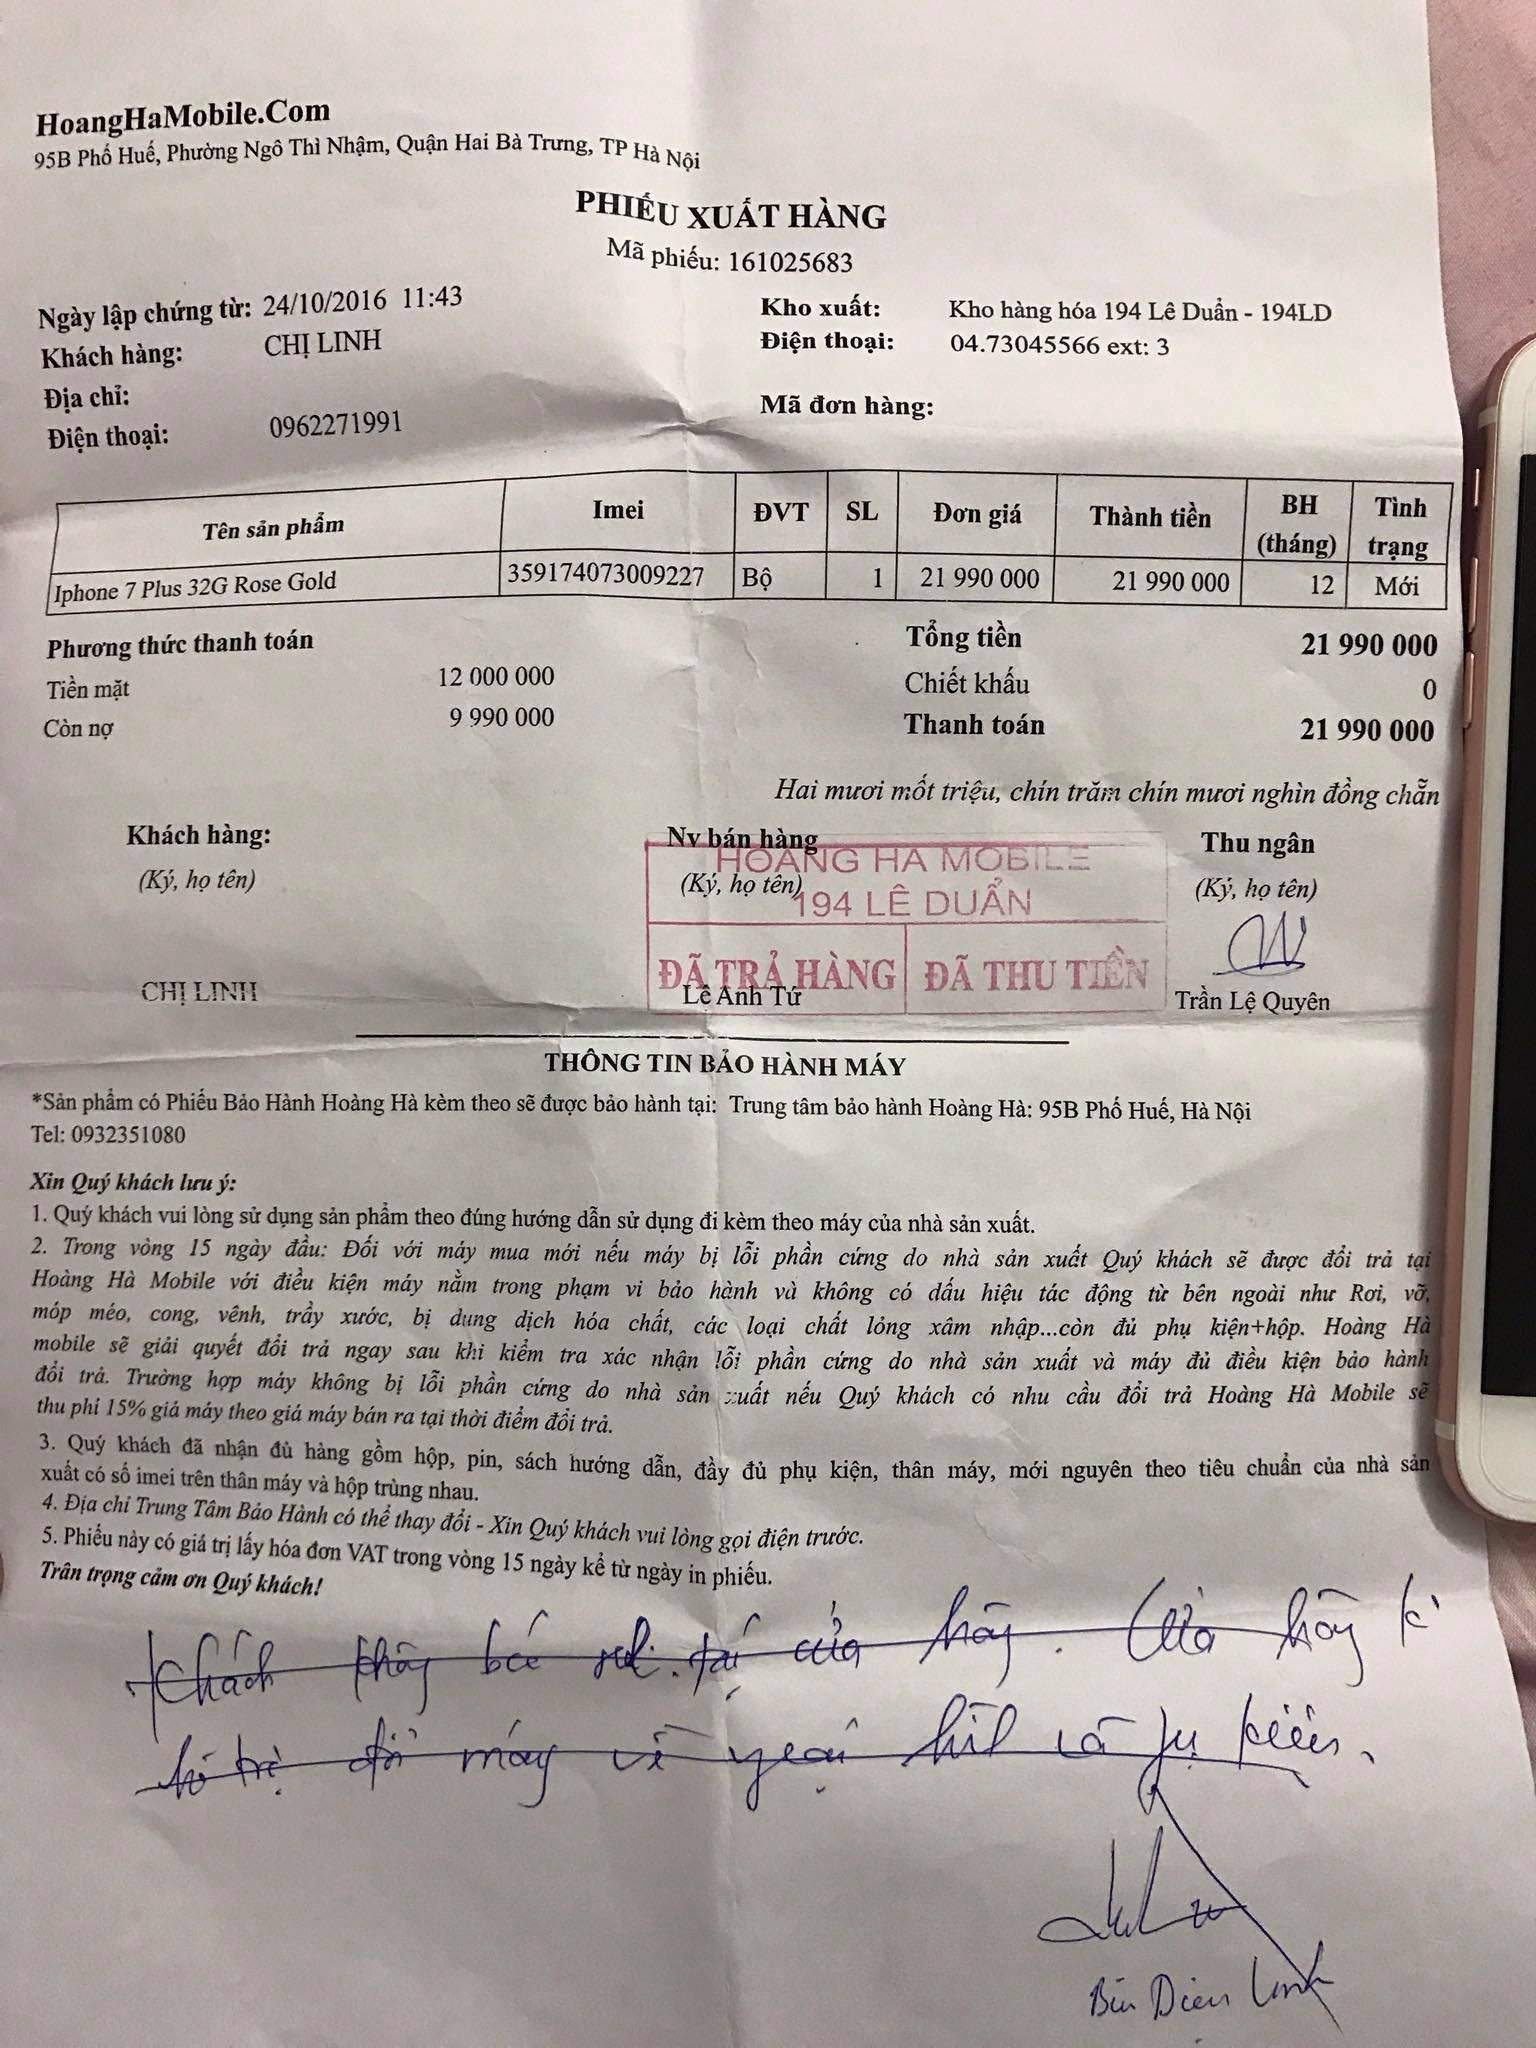 HoangHaMobile.Com
95B Phố Huế, Phường Ngô Thì Nhậm, Quận Hai Bà Trưng, TP Hà Nội
PHIẾU XUẤT HÀNG
Mã phiếu: 161025683
Ngày lập chứng từ: 24/10/2016 11:43
Khách hàng: CHỊ LINH
Địa chỉ:
Điện thoại: 0962271991
Kho xuất: Kho hàng hóa 194 Lê Duẩn - 194LD
Điện thoại: 04.73045566 ext: 3
Mã đơn hàng:
Tên sản phẩm Imei ĐVT SL Đơn giá Thành tiền BH (tháng) Tình trạng
Iphone 7 Plus 32G Rose Gold 359174073009227 Bộ 1 21 990 000 21 990 000 12 Mới
Phương thức thanh toán
Tiền mặt 12 000 000
Còn nợ 9 990 000
Tổng tiền 21 990 000
Chiết khấu 0
Thanh toán 21 990 000
Hai mươi mốt triệu, chín trăm chín mươi nghìn đồng chẵn
Khách hàng: Nv bán hàng Thu ngân
(Ký, họ tên) (Ký, họ tên) (Ký, họ tên)
HOANG HA MOBILE
194 LÊ DUẨN
ĐÃ TRẢ HÀNG ĐÃ THU TIỀN
CHỊ LINH Lê Anh Tứ Trần Lệ Quyên
THÔNG TIN BẢO HÀNH MÁY
*Sản phẩm có Phiếu Bảo Hành Hoàng Hà kèm theo sẽ được bảo hành tại: Trung tâm bảo hành Hoàng Hà: 95B Phố Huế, Hà Nội
Tel: 0932351080
Xin Quý khách lưu ý:
1. Quý khách vui lòng sử dụng sản phẩm theo đúng hướng dẫn sử dụng đi kèm theo máy của nhà sản xuất.
2. Trong vòng 15 ngày đầu: Đối với máy mua mới nếu máy bị lỗi phần cứng do nhà sản xuất Quý khách sẽ được đổi trả tại
Hoàng Hà Mobile với điều kiện máy nằm trong phạm vi bảo hành và không có dấu hiệu tác động từ bên ngoài như Rơi, vỡ,
móp méo, cong, vênh, trầy xước, bị dung dịch hóa chất, các loại chất lỏng xâm nhập...còn đủ phụ kiện+hộp. Hoàng Hà
mobile sẽ giải quyết đổi trả ngay sau khi kiểm tra xác nhận lỗi phần cứng do nhà sản xuất và máy đủ điều kiện bảo hành
đổi trả. Trường hợp máy không bị lỗi phần cứng do nhà sản xuất nếu Quý khách có nhu cầu đổi trả Hoàng Hà Mobile sẽ
thu phí 15% giá máy theo giá máy bán ra tại thời điểm đổi trả.
3. Quý khách đã nhận đủ hàng gồm hộp, pin, sách hướng dẫn, đầy đủ phụ kiện, thân máy, mới nguyên theo tiêu chuẩn của nhà sản
xuất có số imei trên thân máy và hộp trùng nhau.
4. Địa chỉ Trung Tâm Bảo Hành có thể thay đổi - Xin Quý khách vui lòng gọi điện trước.
5. Phiếu này có giá trị lấy hóa đơn VAT trong vòng 15 ngày kể từ ngày in phiếu.
Trân trọng cảm ơn Quý khách!
Khách không tại cửa hàng. Cửa hàng
hỗ trợ đổi máy về và phụ kiện.
Linh